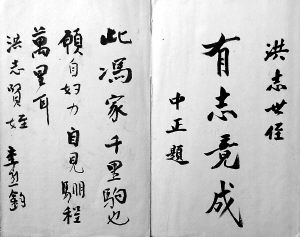 洪志世侄
有志竟成
中正題
此馮家千里駒也
願自努力自見鵬程
萬里耳
洪志賢姪
李烈鈞